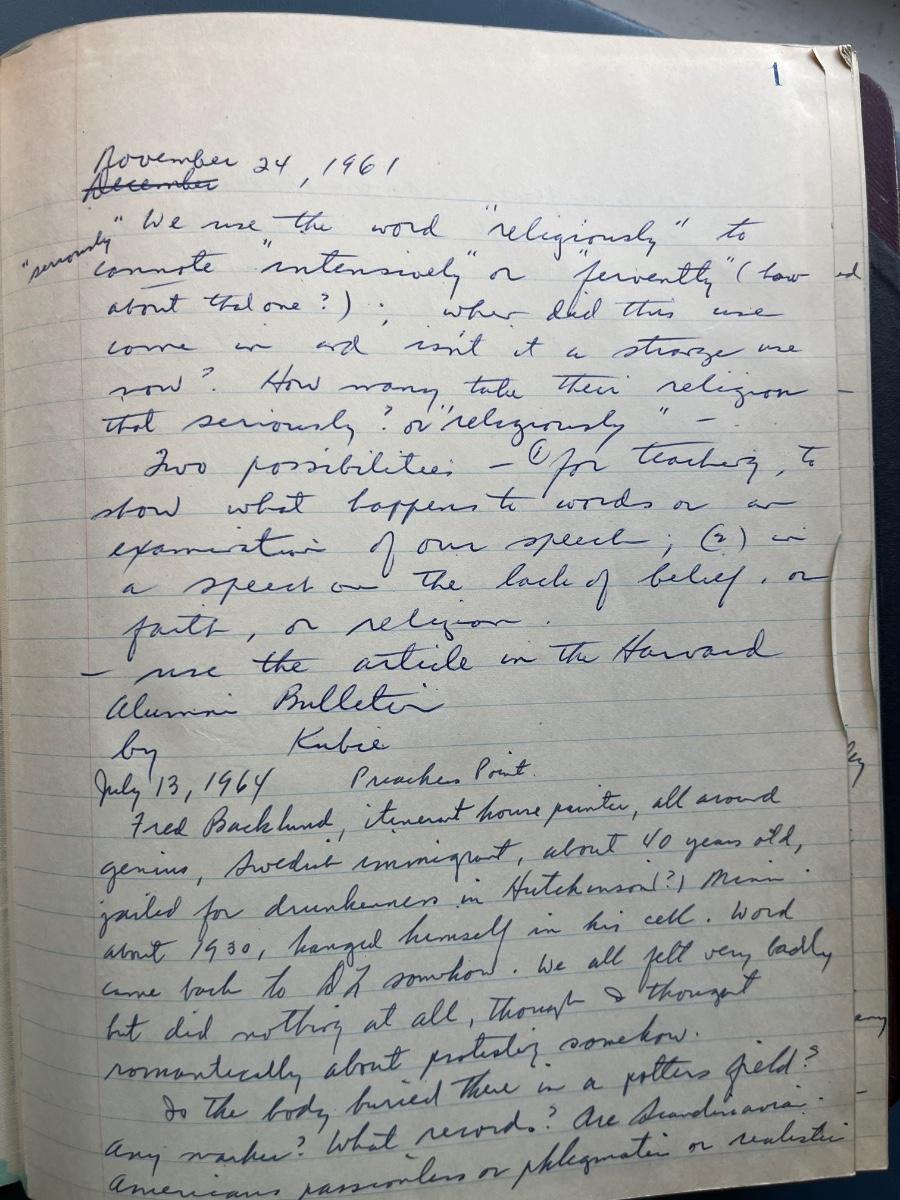 1
November 24, 1961
December
"We use the word "religiously" to
"seriously"
connote "intensively" or "fervently" (how
about that one?); when did this use
come in and isn't it a strange use
now? How many take their religion
that seriously? or "religiously" –
Two possibilities – (1) for teaching, to
show what happens to words or an
examination of our speech; (2) in
a speech on the lack of belief, or
faith, or religion.
– use the article in the Harvard
Alumni Bulletin
by Kubie
July 13, 1964 Preachers Point.
Fred Backlund, itinerant house painter, all around
genius, Swedish immigrant, about 40 years old,
jailed for drunkenness in Hutchinson(?) Minn.
about 1930, hanged himself in his cell. Word
came back to DL somehow. We all felt very badly
but did nothing at all, though I thought
romantically about protesting somehow.
Is the body buried there in a potters field?
Any marker? What records? Are Scandinavian-
Americans passionless or phlegmatic or realistic